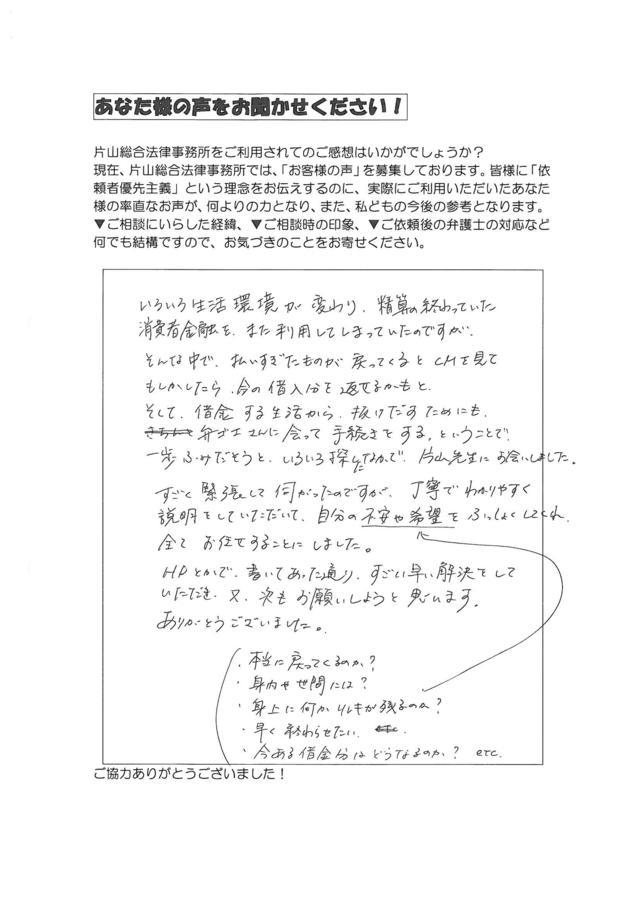 あなた様の声をお聞かせください！
片山総合法律事務所をご利用されてのご感想はいかがでしょうか？
現在、片山総合法律事務所では、「お客様の声」を募集しております。皆様に「依
頼者優先主義」という理念をお伝えするのに、実際にご利用いただいたあなた
様の率直なお声が、何よりの力となり、また、私どもの今後の参考となります。
▼ご相談にいらした経緯、▼ご相談時の印象、▼ご依頼後の弁護士の対応など
何でも結構ですので、お気づきのことをお寄せください。
いろいろ生活環境が変わり、精算の終わっていた
消費者金融を、また利用してしまっていたのですが、
そんな中で、払いすぎたものが戻ってくるとCMを見て
もしかしたら、今の借入分を返せるかもと、
そして、借金する生活から、抜けだすためにも、
きちんと弁ゴ士さんに会って手続きをする。ということで、
一歩ふみだそうと、いろいろ探したなかで、片山先生にお会いしました。
すごく緊張して伺がったのですが、丁寧でわかりやすく
説明をしていただいて、自分の不安や希望をふっしょくしてくれ、
全てお任せすることにしました。
HPとかで、書いてあった通り、すごい早い解決をして
いただき、又、次もお願いしようと思います。
ありがとうございました。
・本当に戻ってくるのか？
・身内や世間には？
・身上に何かリレキが残るのか？
・早く終わらせたい. etc
・今ある借金分はどうなるのか？ etc.
ご協力ありがとうございました！